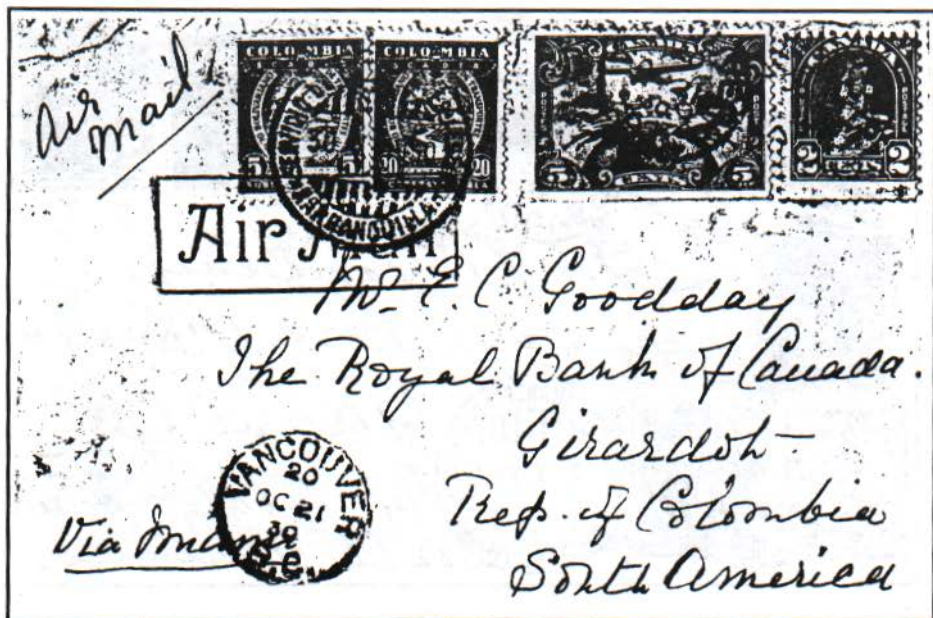 Air
Mail
COLOMBIA COLOMBIA
5 5 20 20
5 CENTS 5
2 CENTS 2
BARRANQUILLA
Air Mail
Mr. E. C Goodday
The Royal Bank of Canada.
Girardot
Rep. of Colombia
South America
VANCOUVER
20
OC 21
30
B.C.
Via